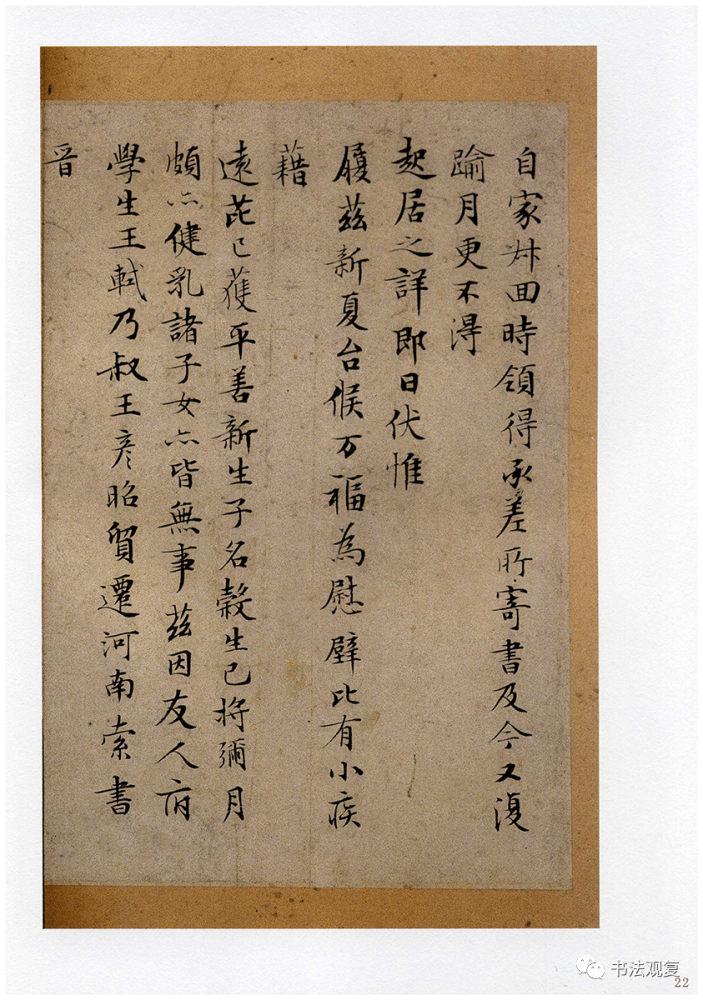 自家叔回時領得承差所寄書及今又復
踰月更不得
起居之詳即日伏惟
履茲新夏台候万福為慰壁比有小疾
藉
遠芘已獲平善新生子名穀生已將彌月
頗亦健乳諸子女亦皆無事茲因友人府
學生王軾乃叔王彥昭貿遷河南索書
晉
书法观复
22